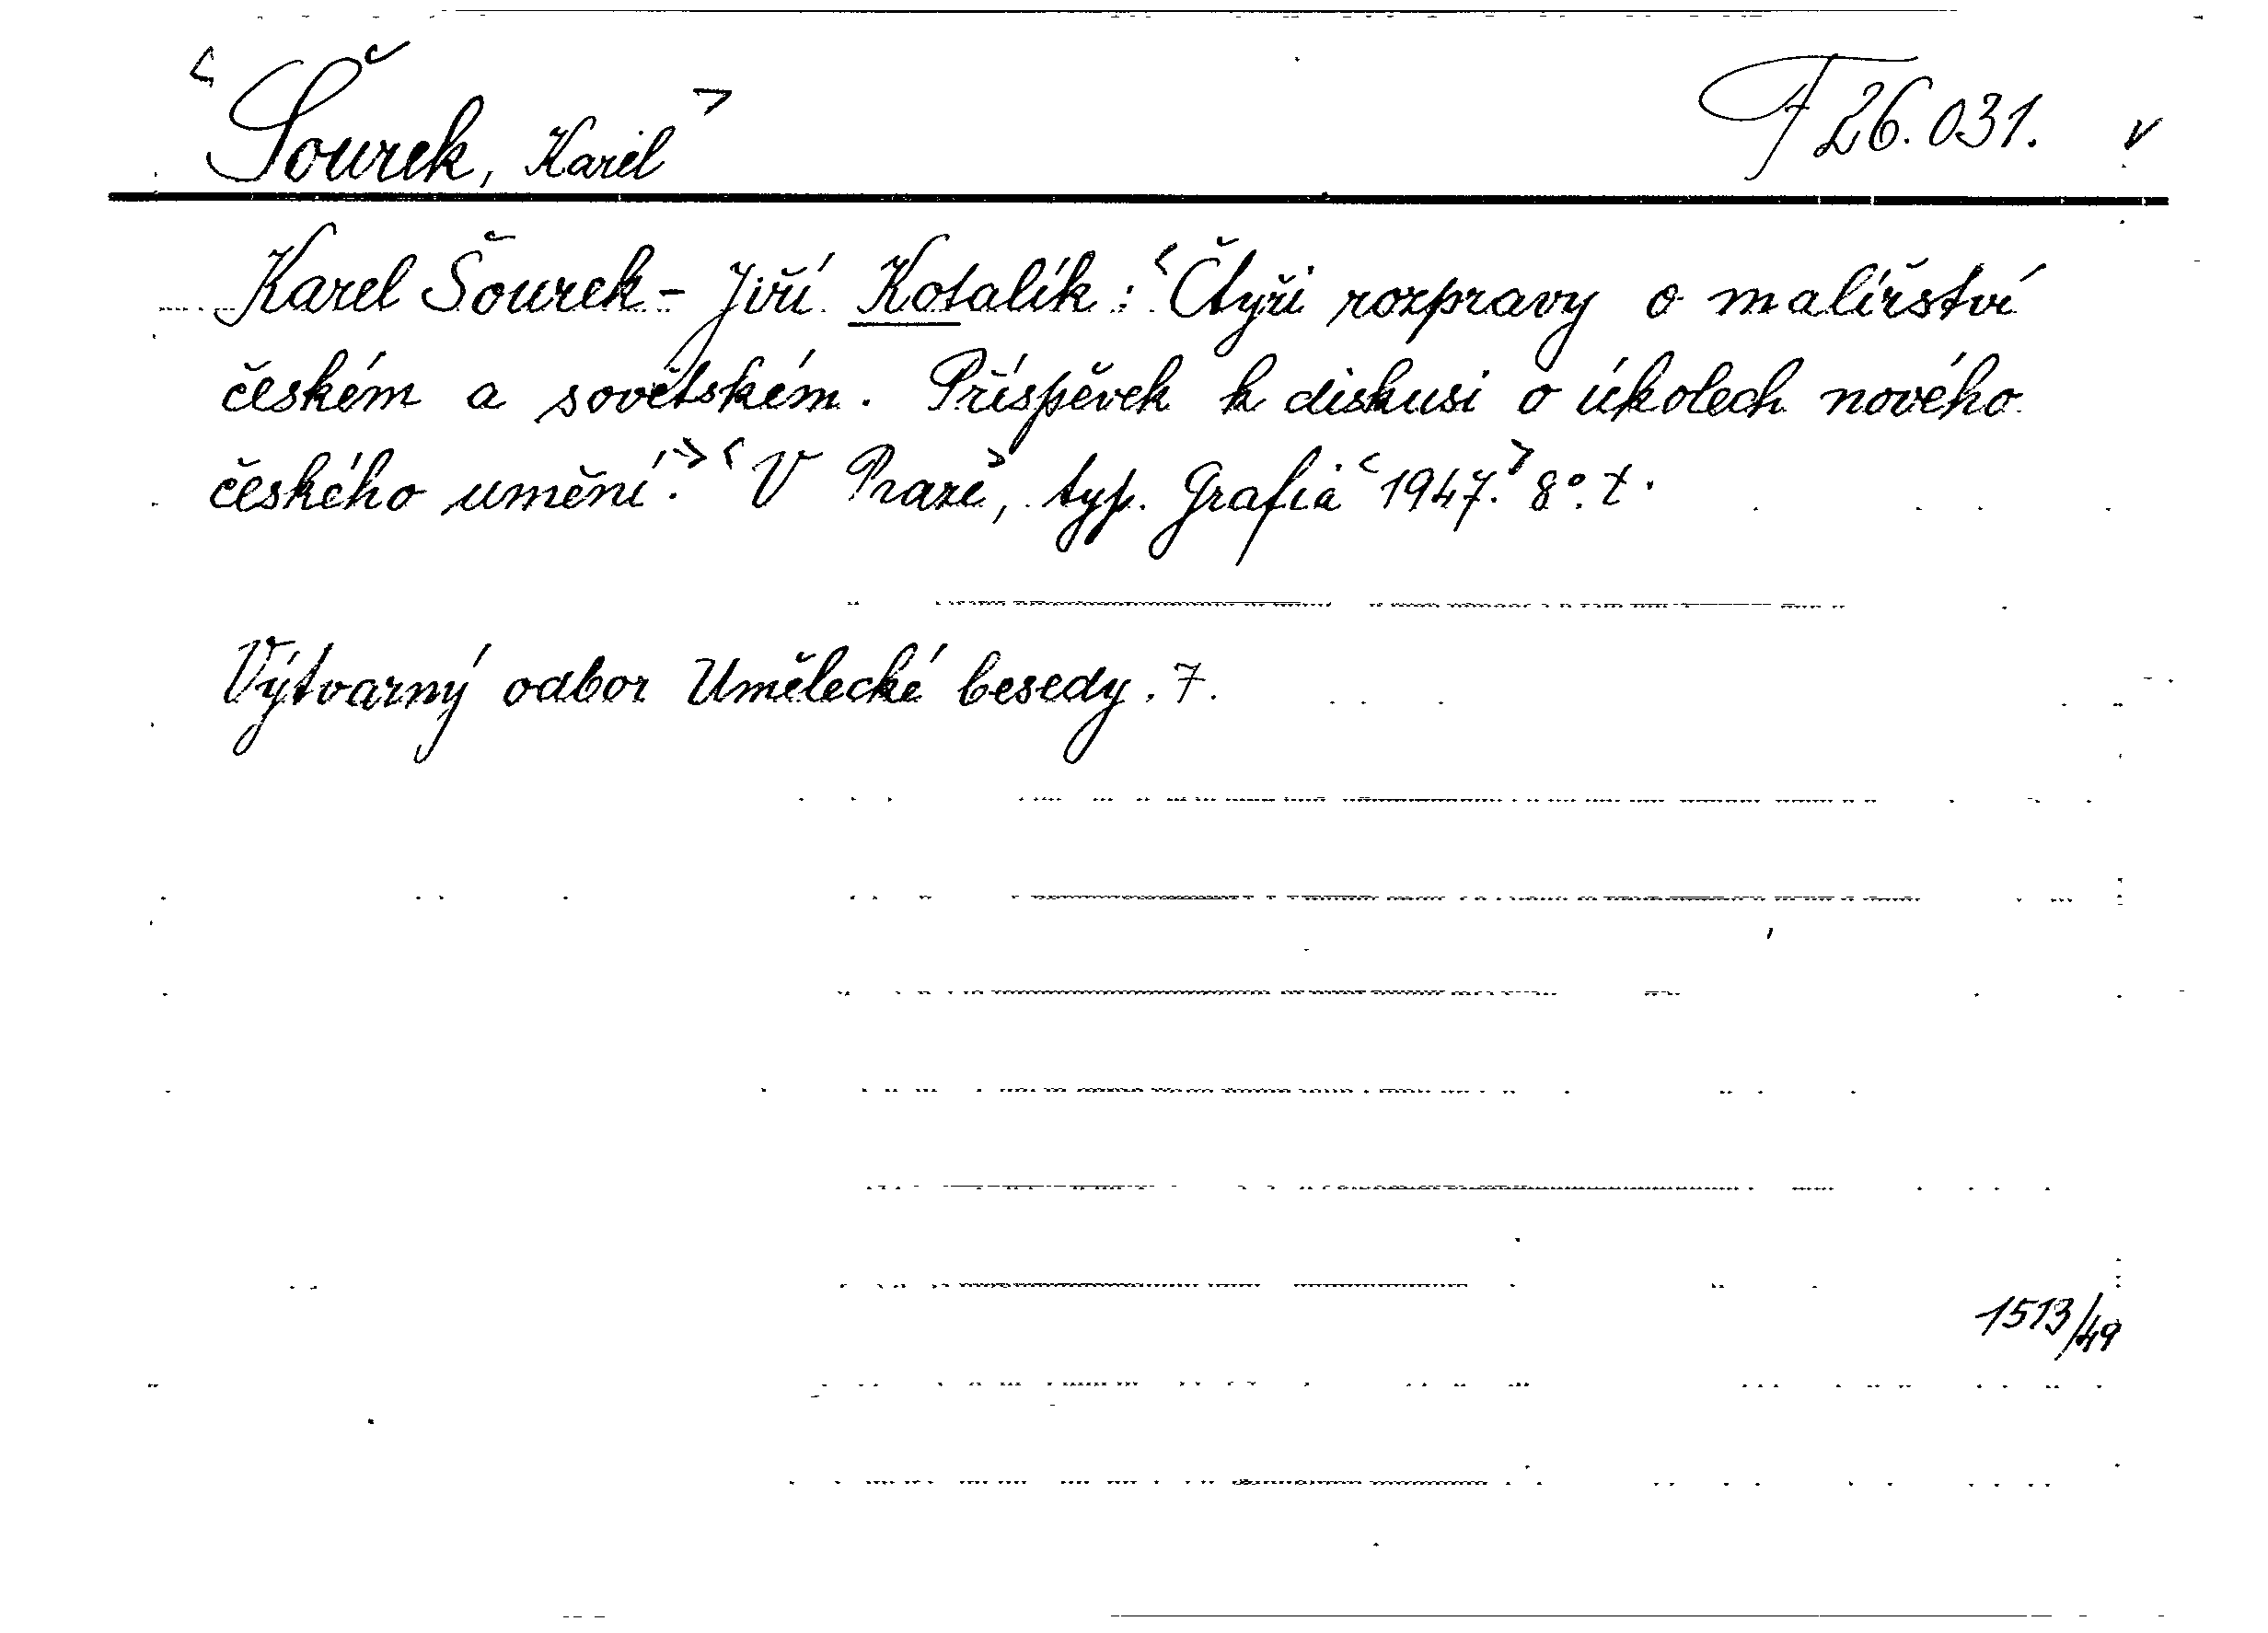 <Šourek, Karel> F 26.031. v
Karel Šourek - Jiří Kotalík: <Čtyři rozpravy o malířství
českém a sovětském. Příspěvek k diskusi o úkolech nového
českého umění.> <V Praze>, typ. Grafia <1947.> 8°. t.
Výtvarný odbor Umělecké besedy. 7.
1513/49